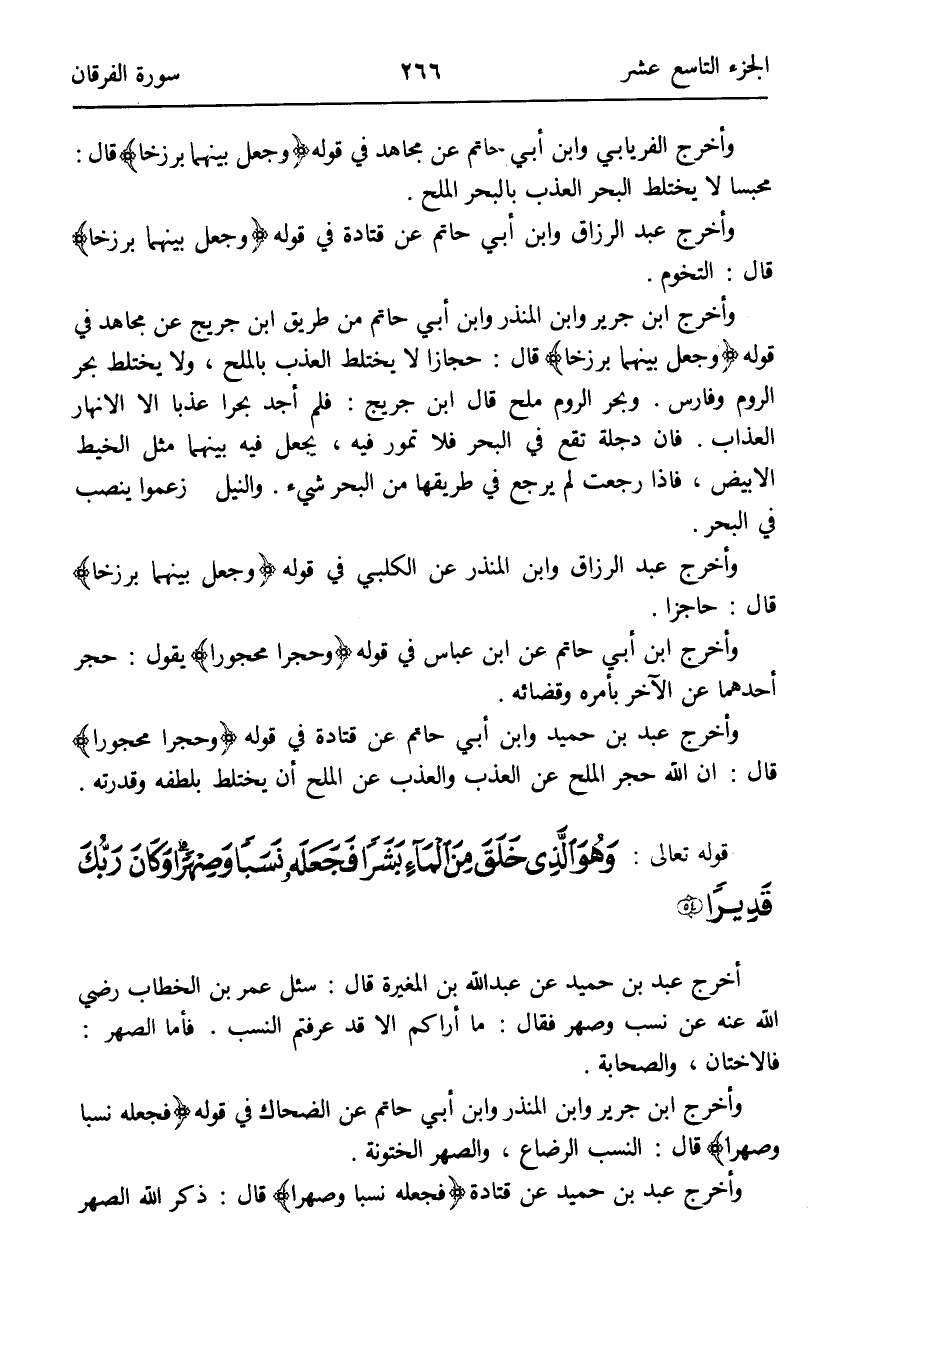 الجزء التاسع عشر ٢٦٦ سورة الفرقان
وأخرج الفريابي وابن أبي حاتم عن مجاهد في قوله ﴿وجعل بينهما برزخا﴾ قال :
محبسا لا يختلط البحر العذب بالبحر الملح .
وأخرج عبد الرزاق وابن أبي حاتم عن قتادة في قوله ﴿وجعل بينهما برزخا﴾
قال : التخوم .
وأخرج ابن جرير وابن المنذر وابن أبي حاتم من طريق ابن جريج عن مجاهد في
قوله ﴿وجعل بينهما برزخا﴾ قال : حجازا لا يختلط العذب بالملح ، ولا يختلط بحر
الروم وفارس . وبحر الروم ملح قال ابن جريج : فلم أجد بحرا عذبا الا الانهار
العذاب . فان دجلة تقع في البحر فلا تمور فيه ، يجعل فيه بينهما مثل الخيط
الابيض ، فاذا رجعت لم يرجع في طريقها من البحر شيء . والنيل زعموا ينصب
في البحر .
وأخرج عبد الرزاق وابن المنذر عن الكلبي في قوله ﴿وجعل بينهما برزخا﴾
قال : حاجزا .
وأخرج ابن أبي حاتم عن ابن عباس في قوله ﴿وحجرا محجورا﴾ يقول : حجر
أحدهما عن الآخر بأمره وقضائه .
وأخرج عبد بن حميد وابن أبي حاتم عن قتادة في قوله ﴿وحجرا محجورا﴾
قال : ان الله حجر الملح عن العذب والعذب عن الملح أن يختلط بلطفه وقدرته .
قوله تعالى : وَهُوَ ٱلَّذِى خَلَقَ مِنَ ٱلْمَآءِ بَشَرًا فَجَعَلَهُۥ نَسَبًا وَصِهْرًا ۗ وَكَانَ رَبُّكَ
قَدِيرًا ﴿٥٤﴾
أخرج عبد بن حميد عن عبدالله بن المغيرة قال : سئل عمر بن الخطاب رضي
الله عنه عن نسب وصهر فقال : ما أراكم الا قد عرفتم النسب . فأما الصهر :
فالاختان ، والصحابة .
وأخرج ابن جرير وابن المنذر وابن أبي حاتم عن الضحاك في قوله ﴿فجعله نسبا
وصهرا﴾ قال : النسب الرضاع ، والصهر الختونة .
وأخرج عبد بن حميد عن قتادة ﴿فجعله نسبا وصهرا﴾ قال : ذكر الله الصهر